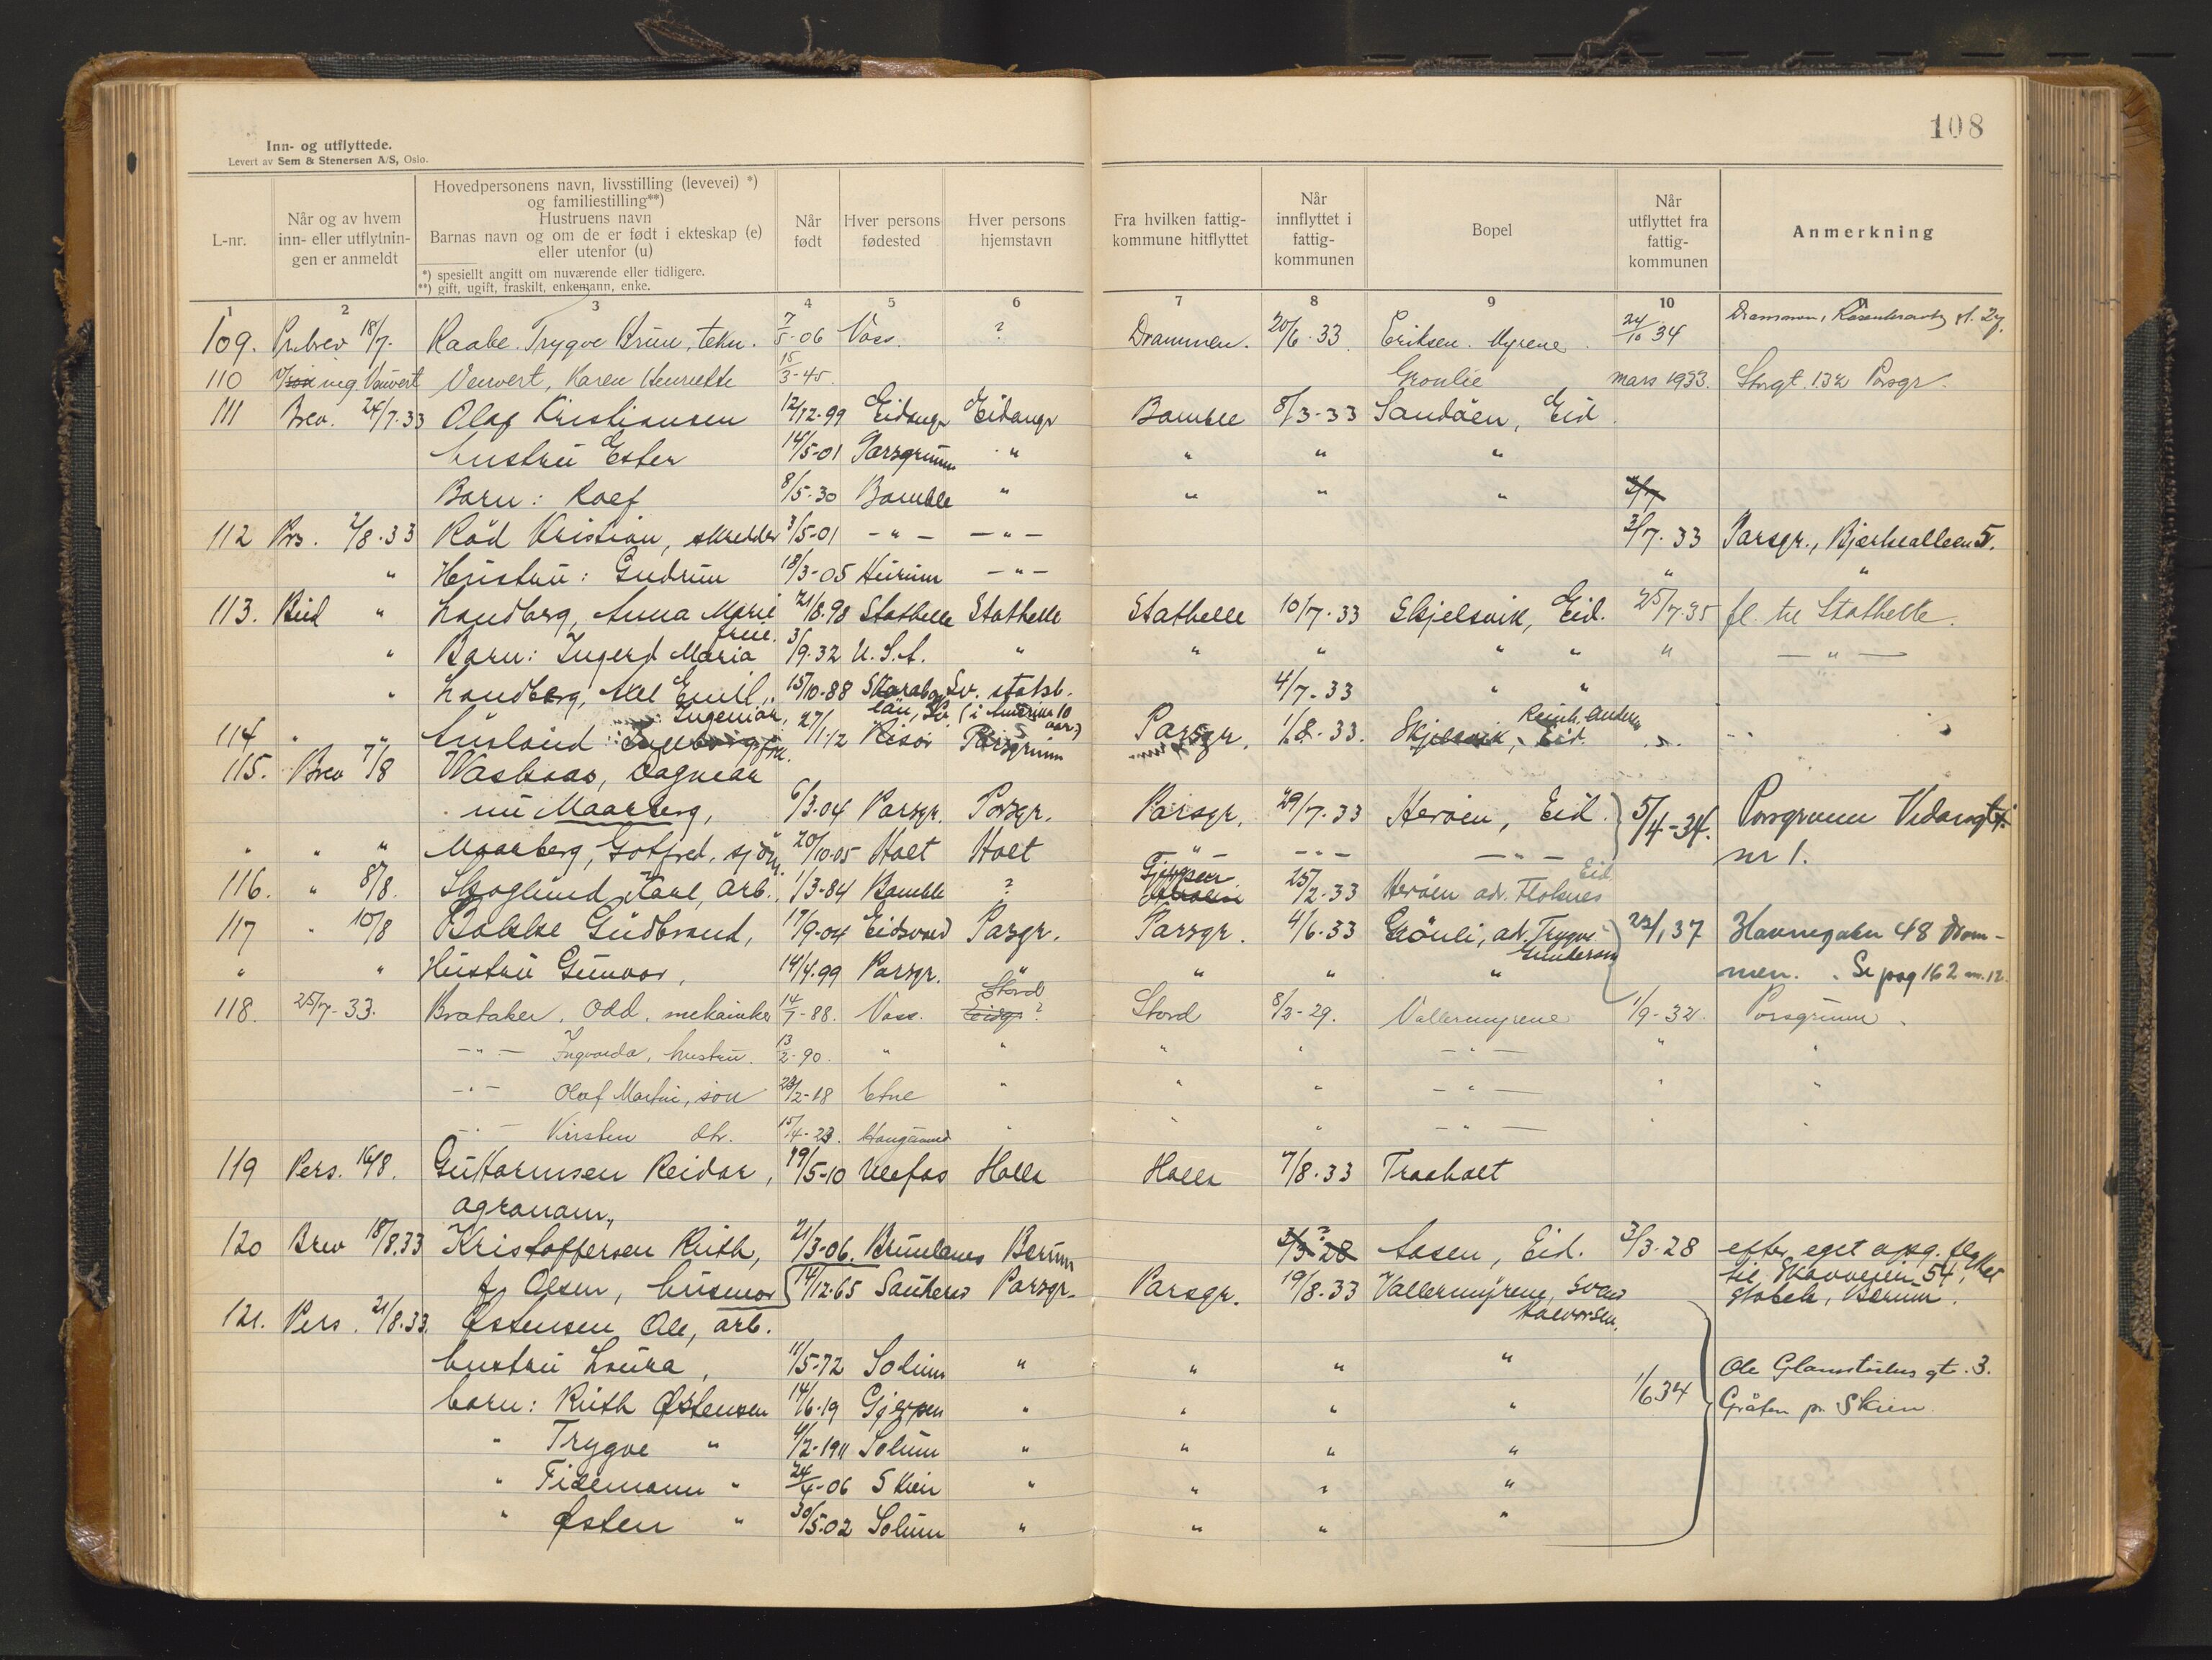 108
Inn- og utflyttede.
Levert av Sem & Stenersen A/S, Oslo.
L-nr.
Når og av hvem
inn- eller utflytnin-
gen er anmeldt
Hovedpersonens navn, livsstilling (levevei) *)
og familiestilling**)
Hustruens navn
Barnas navn og om de er født i ekteskap (e)
eller utenfor (u)
*) spesiellt angitt om nuværende eller tidligere.
**) gift, ugift, fraskilt, enkemann, enke.
Når
født
Hver persons
fødested
Hver persons
hjemstavn
Fra hvilken fattig-
kommune hitflyttet
Når
innflyttet i
fattig-
kommunen
Bopel
Når
utflyttet fra
fattig-
kommunen
Anmerkning
1 2 3 4 5 6 7 8 9 10
109. 18/7. Raabe Trygve Brun, tekn. 7/5-06 Voss. ? Drammen. 20/6.33. Eriksen. Myrene. 24/10 34
110 Karen Henriette 15/3-45. Grønlie mars 1933. Storgt. 132 Porsgr.
111 Brev. 24/7.33 Olaf Kristiansen 12/12-99 Eidangr Eidangr Bamble 8/3-33 Sandøen, Eid.
hustru Ester 14/5-01 Porsgrunn " " " "
Barn: Rolf 8/5-30 Bamble " " " " 3/7
112 Prs. 2/8.33 Rød Kristian, skredder 3/5-01 -"- -"- 3/7.33 Porsgr., Bjerkealleen 5.
" Hustru: Gudrun 18/3-05 Hurum -"- " "
113. Bud " Landberg, Anna Marie 21/8.98 Stathelle Stathelle Stathelle 10/7.33 Skjelsvik, Eid. 25/7.35 fl. til Stathelle.
frue.
" Barn: Ingerd Maria 3/9.32 U.S.A. " " " " " " -"-
" Landberg, Axel Emil, 15/10-88 Skarabog Sv. statsb. 4/7-33 " "
Ingeniør, län, Sv. (i Amerika 10 aar.)
114 " " Ausland 27/1-12 Risør Porsgrunn Porsgr. 1/8-33. Skjelsvik, Eid.
115. Brev 7/8 Waskaas, Dagmar
nu Maarberg, 6/3.04 Porsgr. Porsgr. Porsgr. 29/7.33 Herøen, Eid. 5/4-34. Porsgrunn Vidarsgt.
" " " Maarberg, Gotfred, sjøm. 20/10-05 Holt Holt " -"- -"- nr 1.
116. " 8/8. Skoglund Karl, arb. 1/3-84 Bamble ? Gjerpen 25/2-33 Herøen ad. Floknes Eid
117 " 10/8 Bakke Gudbrand, 17/9-04 Eidsvold Porsgr. Porsgr. 4/6.33 Grönli, ad. Trygve Gundersen 23/1 37 Havnegaten 48 Dram-
" " Hustru Gunvor, 14/4.99 Porsgr. " " " " men. Se pag 162 nr. 12.
118. 25/7-33. Brataker, Odd, mekaniker 14/7-88. Voss. Stord Eidgr ? Stord 8/2-29. Vallermyrene 1/9-32. Porsgrunn.
-"- Ingvarda, hustru. 13/2-90. " " " " -"- " "
-"- Olaf Martin, søn 23/2-18 Etne " " " -"- " "
-"- Kirsten dtr. 15/4-23. Haugesund " " " -"- " "
119 Pers. 16/8. Guttormsen Reidar, 19/5-10 Ulefos Holla Holla 7/8.33 Traaholt
agronom,
120 Brev 18/8.33 Kristoffersen Ruth, 21/3-06. Brunlanes Berum 3/3 28 ? Aasen, Eid. 3/3-28 efter eget opsg. flyttet
f. Olsen, husmor til Skovveien 54,
Stabek, Berum.
121. Pers. 21/8.33. Østensen Ole, arb. 14/12.65 Sauherad Porsgr. Porsgr. 19/8.33 Vallermyrene, Svend Halvorsen.
hustru Laura, 11/5-72 Solum " " " "
barn: Ruth Østensen 14/6.19 Gjerpen " " " " 1/6 34 Ole Glomstulens gt. 3.
Gråten pr. Skien
" Trygve " 4/2-1911 Solum " " " "
" Fidemann " 24/4-06 Skien " " " "
" Østen " 30/5.02 Solum " " " "